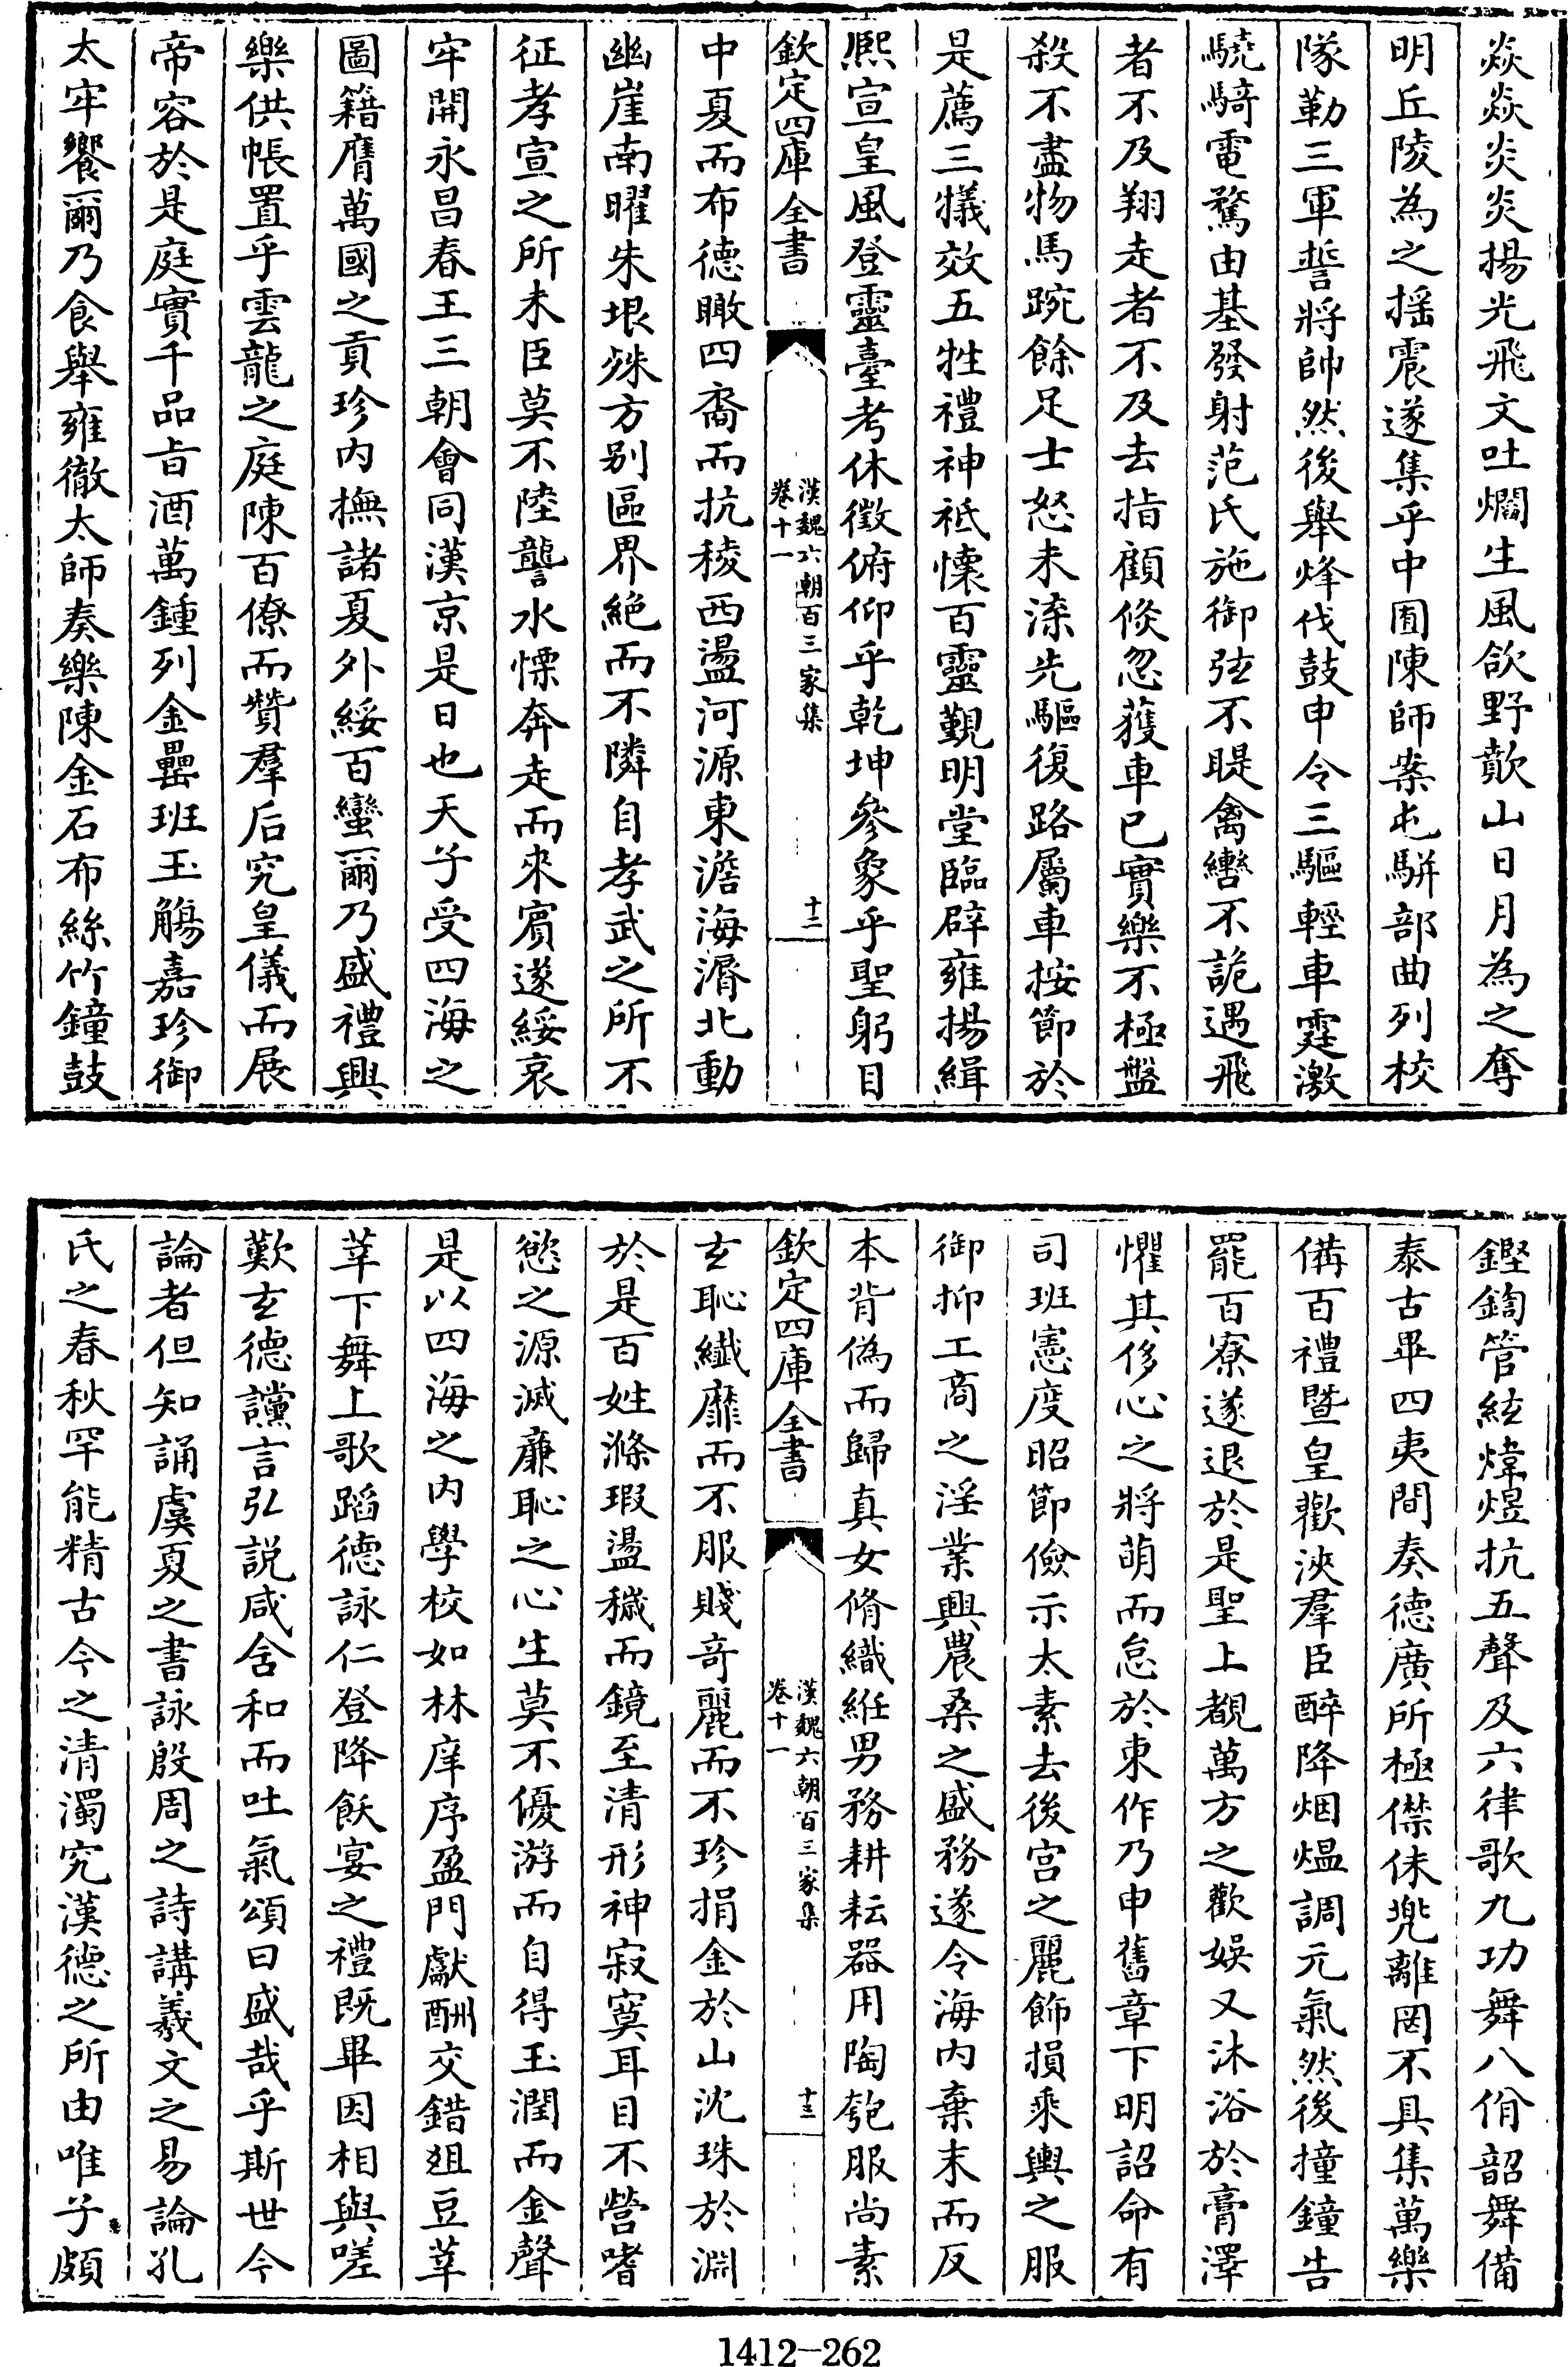 焱焱炎炎揚光飛文吐爓生風欱野歕山日月為之奪
明丘陵為之搖震遂集乎中囿陳師案屯駢部曲列校
隊勒三軍誓將帥然後舉烽伐鼓申令三驅輕車霆激
驍騎電騖由基發射范氏施御弦不睼禽轡不詭遇飛
者不及翔走者不及去指顧倐忽獲車已實樂不極盤
殺不盡物馬踠餘足士怒未渫先驅復路屬車按節於
是薦三犧效五牲禮神祗懷百靈覲明堂臨辟雍揚緝
熈宣皇風登靈臺考休徵俯仰乎乾坤參象乎聖躬目
欽定四庫全書
漢魏六朝百三家集
卷十一
十二
中夏而布德瞰四裔而抗稜西盪河源東澹海漘北動
幽崖南曜朱垠殊方别區界絶而不隣自孝武之所不
征孝宣之所未臣莫不陸讋水慄奔走而來賓遂綏哀
牢開永昌春王三朝會同漢京是日也天子受四海之
圖籍膺萬國之貢珍内撫諸夏外綏百蠻爾乃盛禮興
樂供帳置乎雲龍之庭陳百僚而贊羣后究皇儀而展
帝容於是庭實千品㫖酒萬鍾列金罍班玉觴嘉珍御
太牢饗爾乃食舉雍徹太師奏樂陳金石布絲竹鐘鼓
鏗鍧管絃煒煜抗五聲及六律歌九功舞八佾韶舞備
泰古畢四夷間奏德廣所極僸佅兠離罔不具集萬樂
備百禮暨皇歡浹羣臣醉降烟煴調元氣然後撞鐘告
罷百寮遂退於是聖上覩萬方之歡娛又沐浴於膏澤
懼其侈心之將萌而怠於東作乃申舊章下明詔命有
司班憲度昭節儉示太素去後宮之麗飾損乘輿之服
御抑工商之淫業興農桑之盛務遂令海内棄末而反
本背偽而歸真女脩織紝男務耕耘器用陶匏服尚素
欽定四庫全書
漢魏六朝百三家集
卷十一
十三
玄恥纎靡而不服賤竒麗而不珍捐金於山沈珠於淵
於是百姓滌瑕盪穢而鏡至清形神寂寞耳目不營嗜
慾之源滅廉恥之心生莫不優游而自得玉潤而金聲
是以四海之内學校如林庠序盈門獻酬交錯俎豆莘
莘下舞上歌蹈德詠仁登降飫宴之禮既畢因相與嗟
歎玄德讜言弘説咸含和而吐氣頌曰盛哉乎斯世今
論者但知誦虞夏之書詠殷周之詩講羲文之易論孔
氏之春秋罕能精古今之清濁究漢德之所由唯子頗
1412-262